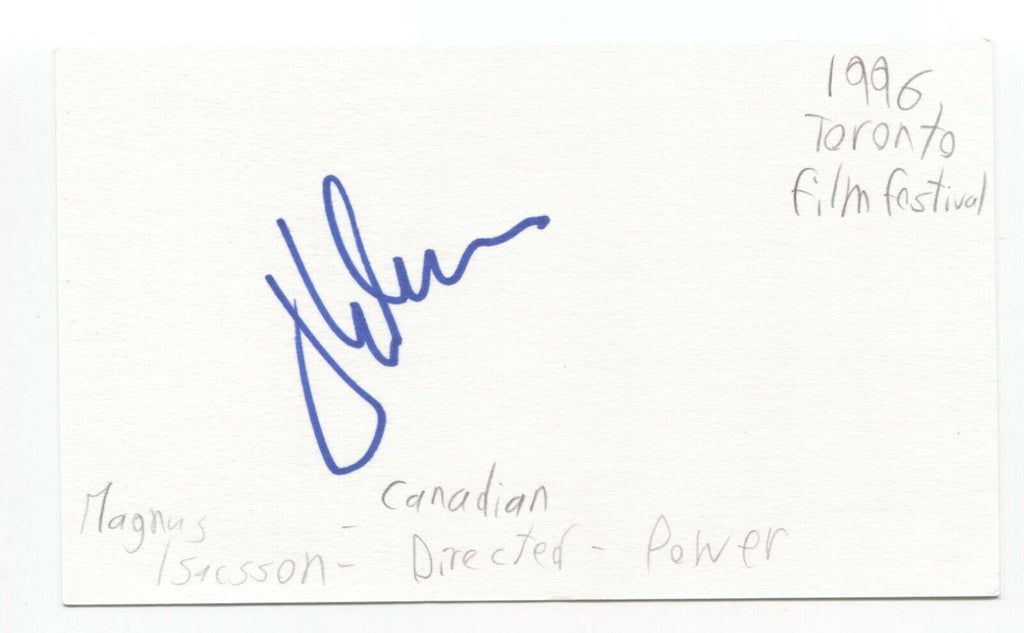 1996
Toronto
film festival
Magnus - Canadian
Isacsson - Directed - Power